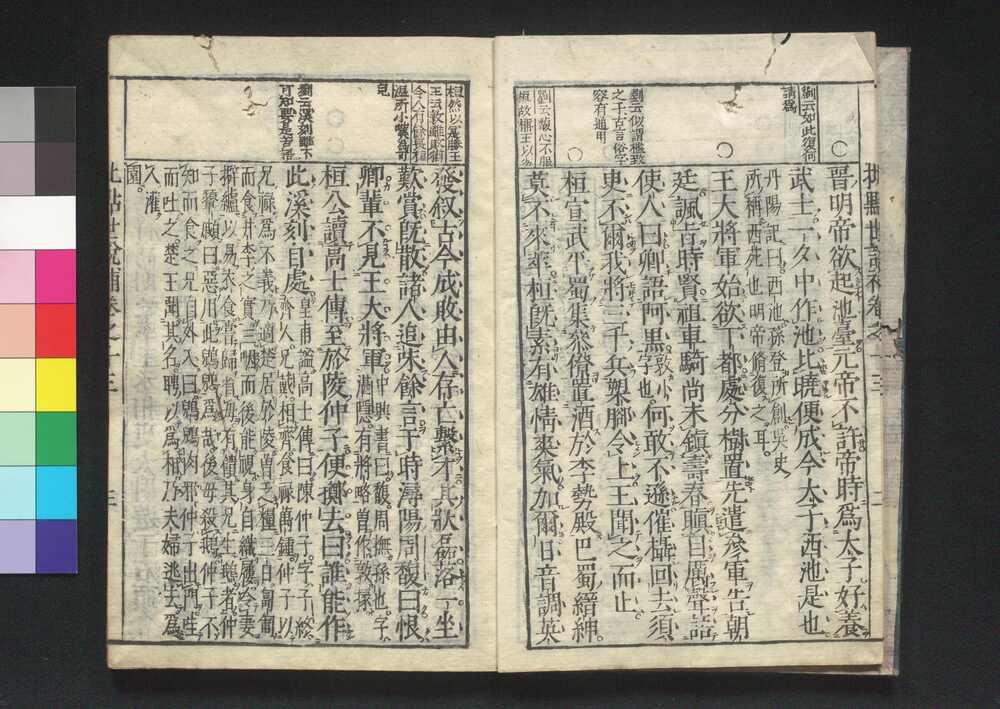 劉云如此復何
請為
劉云似謂極致
之于古言俗字
容有通用
劉云蘊心不服
桓故稱王以
晉明帝欲起池臺元帝不許帝時為太子好養
武士一夕中作池比曉便成今太子西池是也
丹陽記曰西池孫登所創吳史
所稱西苑也明帝脩復之耳
王大將軍始欲下都處分樹置先遣參軍告朝
廷諷旨時賢祖車騎尚未鎮壽春瞋目厲聲語
使人曰卿語阿黑敦小字也何敢不遜催攝回去須
臾不爾我將三千兵槊腳令上王聞之而止
桓宣武平蜀集參僚置酒於李勢殿巴蜀縉紳
莫不來萃桓既素有雄情爽氣加爾日音調英
桓然以為勝王
劉云溪刻難下
發叙古今成敗由人存亡繫才其狀磊落一坐
歎賞既散諸人追味餘言于時尋陽周馥曰恨
卿輩不見王大將軍中興書曰馥周撫孫也字
湛隱有將略曾作敦掾
桓公讀高士傳至於陵仲子便擲去曰誰能作
此溪刻自處皇甫謐高士傳曰陳仲子字子終
齊人兄戴相齊食祿萬鍾仲子以
兄祿為不義乃適楚居於陵曾乏糧三日匍匐
而食井李之實三咽而後能視身自織屨令妻
擗纑以易衣食嘗歸省母有饋其兄生鵝者仲
子嚬顣曰惡用此鶂鶂為哉後母殺鵝仲子不
知而食之兄自外入曰鶂鶂肉邪仲子出門哇
而吐之楚王聞其名聘以為相乃夫婦逃去為
人灌
園
批點世說補卷之十三